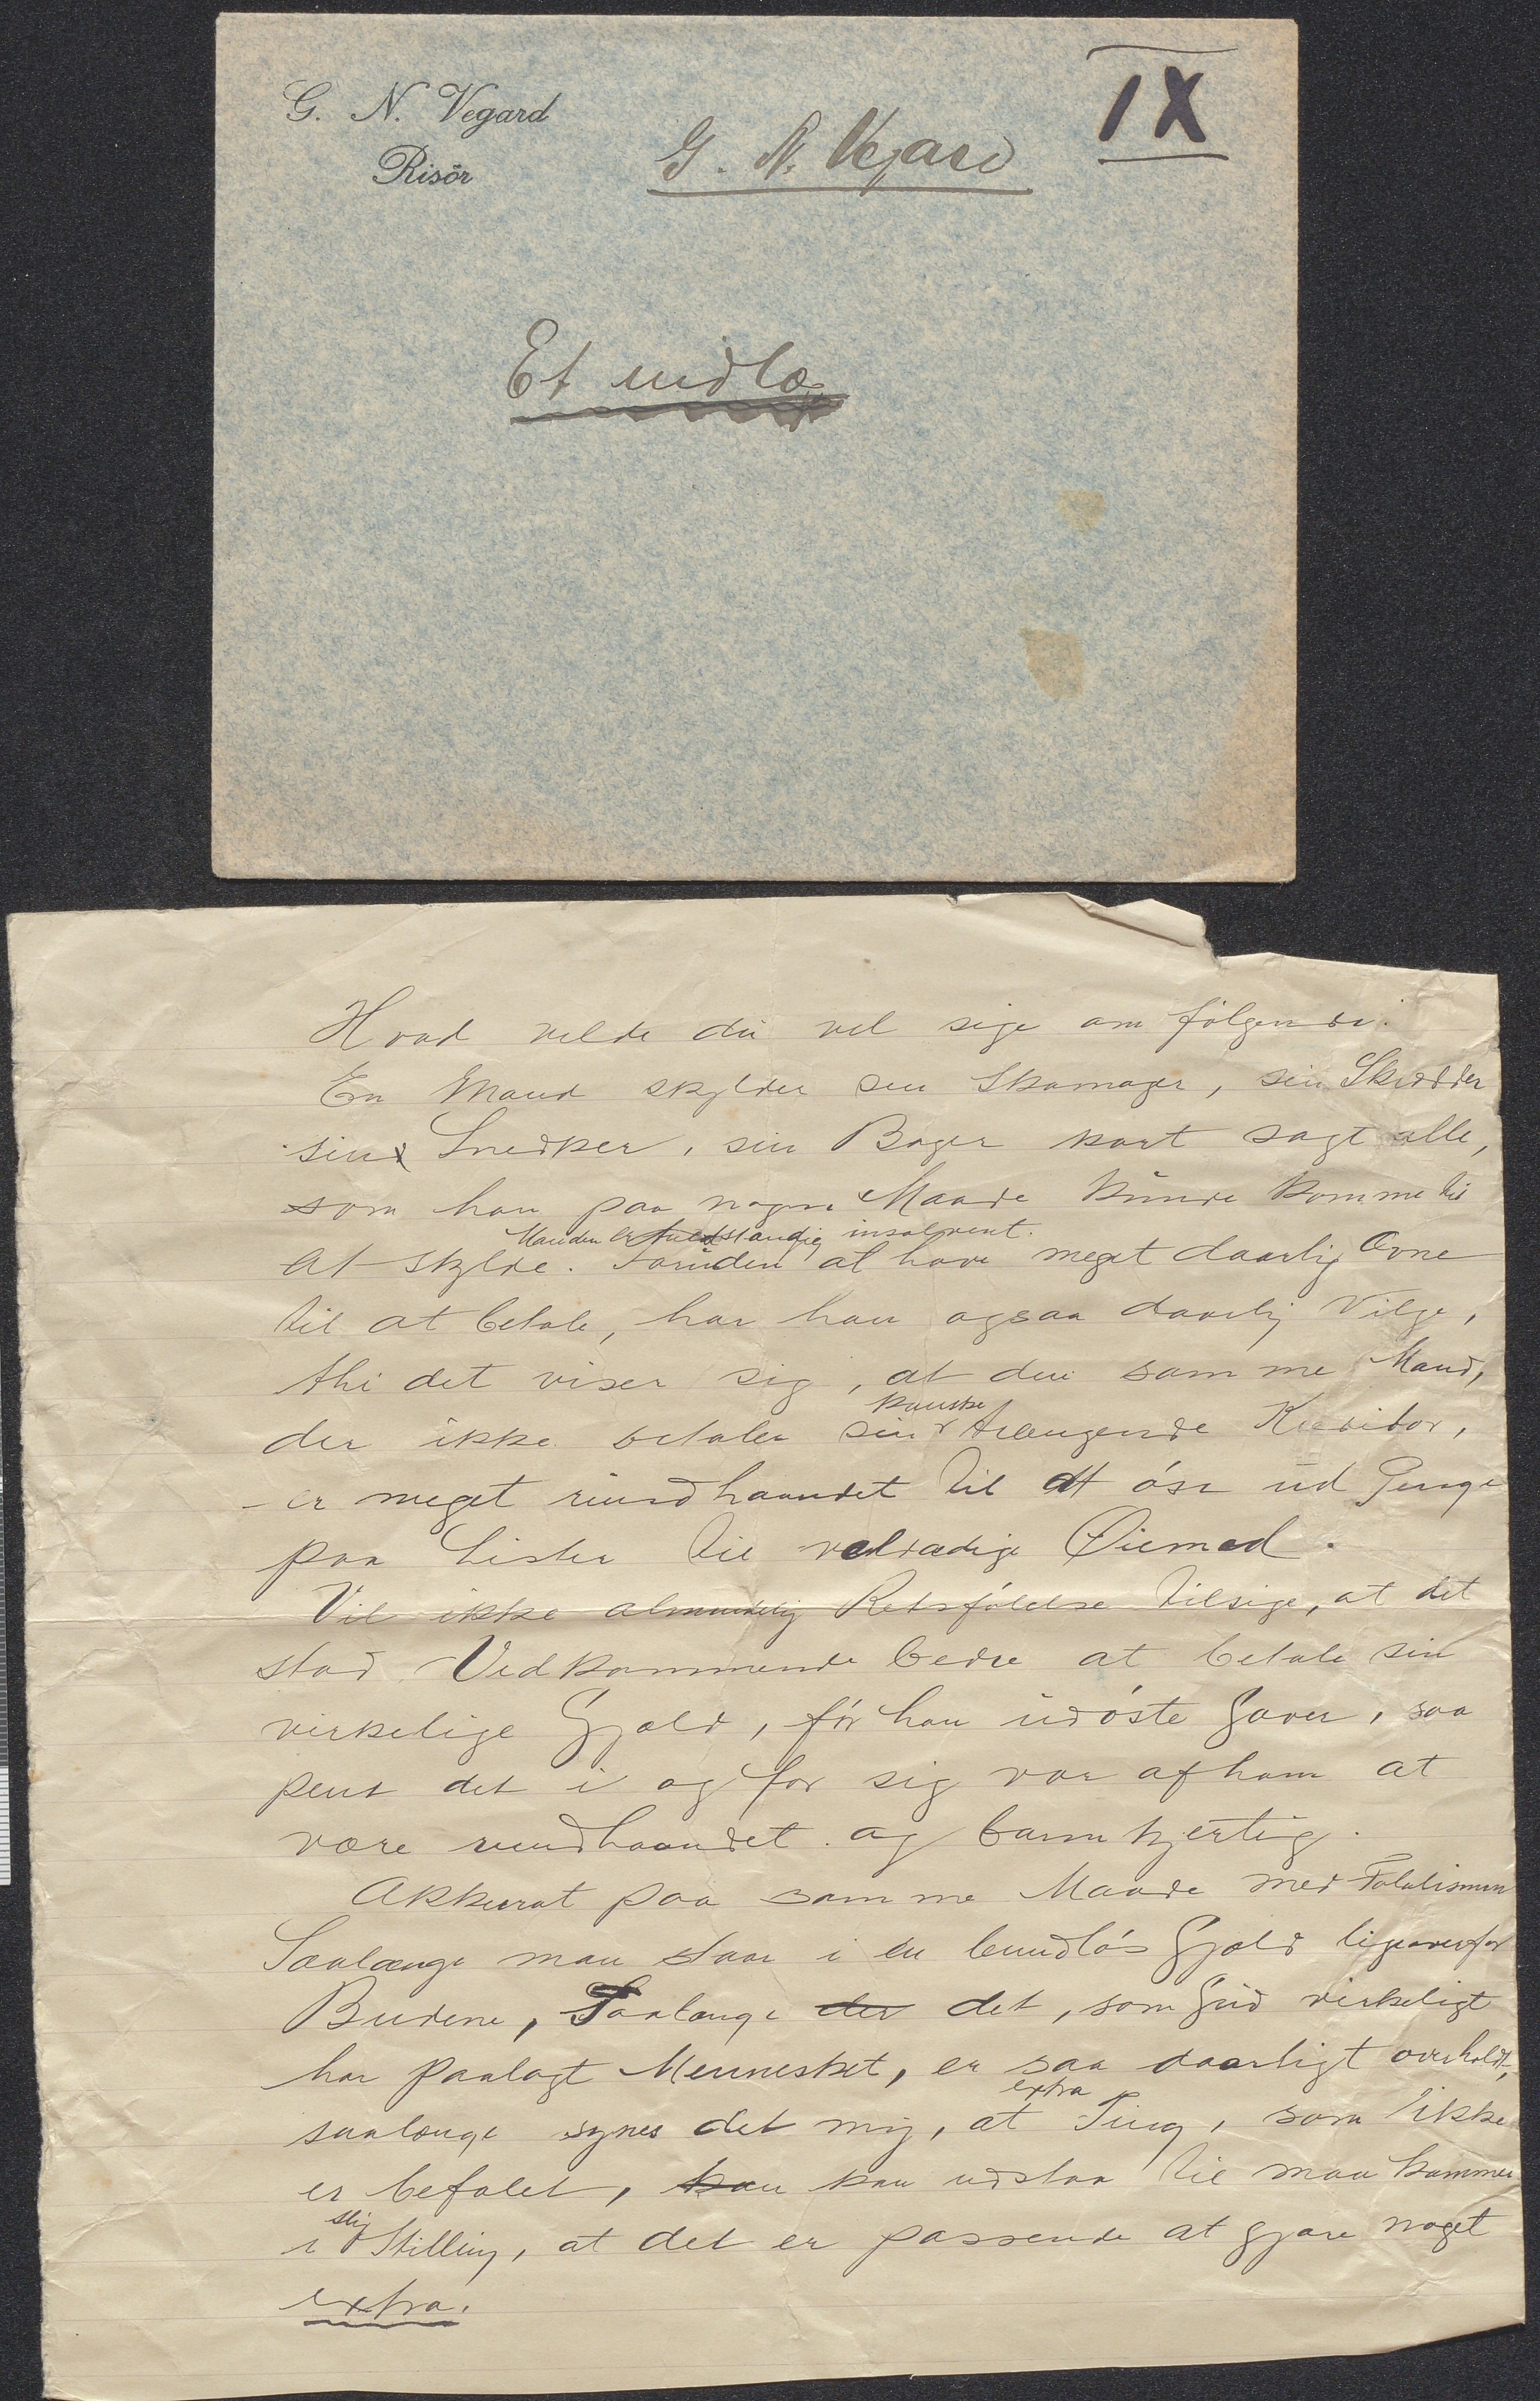 G. N. Vegard
Risör
G. N. Vegard
IX
Et indlæg
Hvad vilde du vel sige om følgende:
En Mand skylder sin Skomager, sin Skrædder
sin Snedker, sin Bager kort sagt alle,
som han paa nogen Maade kunde komme til
Manden er fuldstændig insolvent.
at skylde. Foruden at have meget daarlig Evne
til at betale, har han ogsaa daarlig Vilje,
thi det viser sig, at den samme Mand,
kanske
der ikke betaler sin trængende Kreditor,
- er meget rundhaandet til at øse ud Penge
paa Lister til veldædige Øiemed.
Vil ikke almindelig Retsfølelse tilsige, at det
stod Vedkommende bedre at betale sin
virkelige Gjæld, før han udøste Gaver, saa
pent det i og for sig var af ham at
være rundhaandet og barmhjertig.
Akkurat paa samme Maade med Totalismen
Saalænge man staar i en bundløs Gjæld ligeoverfor
Budene, Saalænge der det, som Gud virkeligt
har paalagt Mennesket, er saa daarligt overholdt,
extra
saalænge synes det mig, at Ting, som ikke
er befalet, kan kan udstaa til man kommer
slig
i Stilling, at det er passende at gjøre noget
extra.